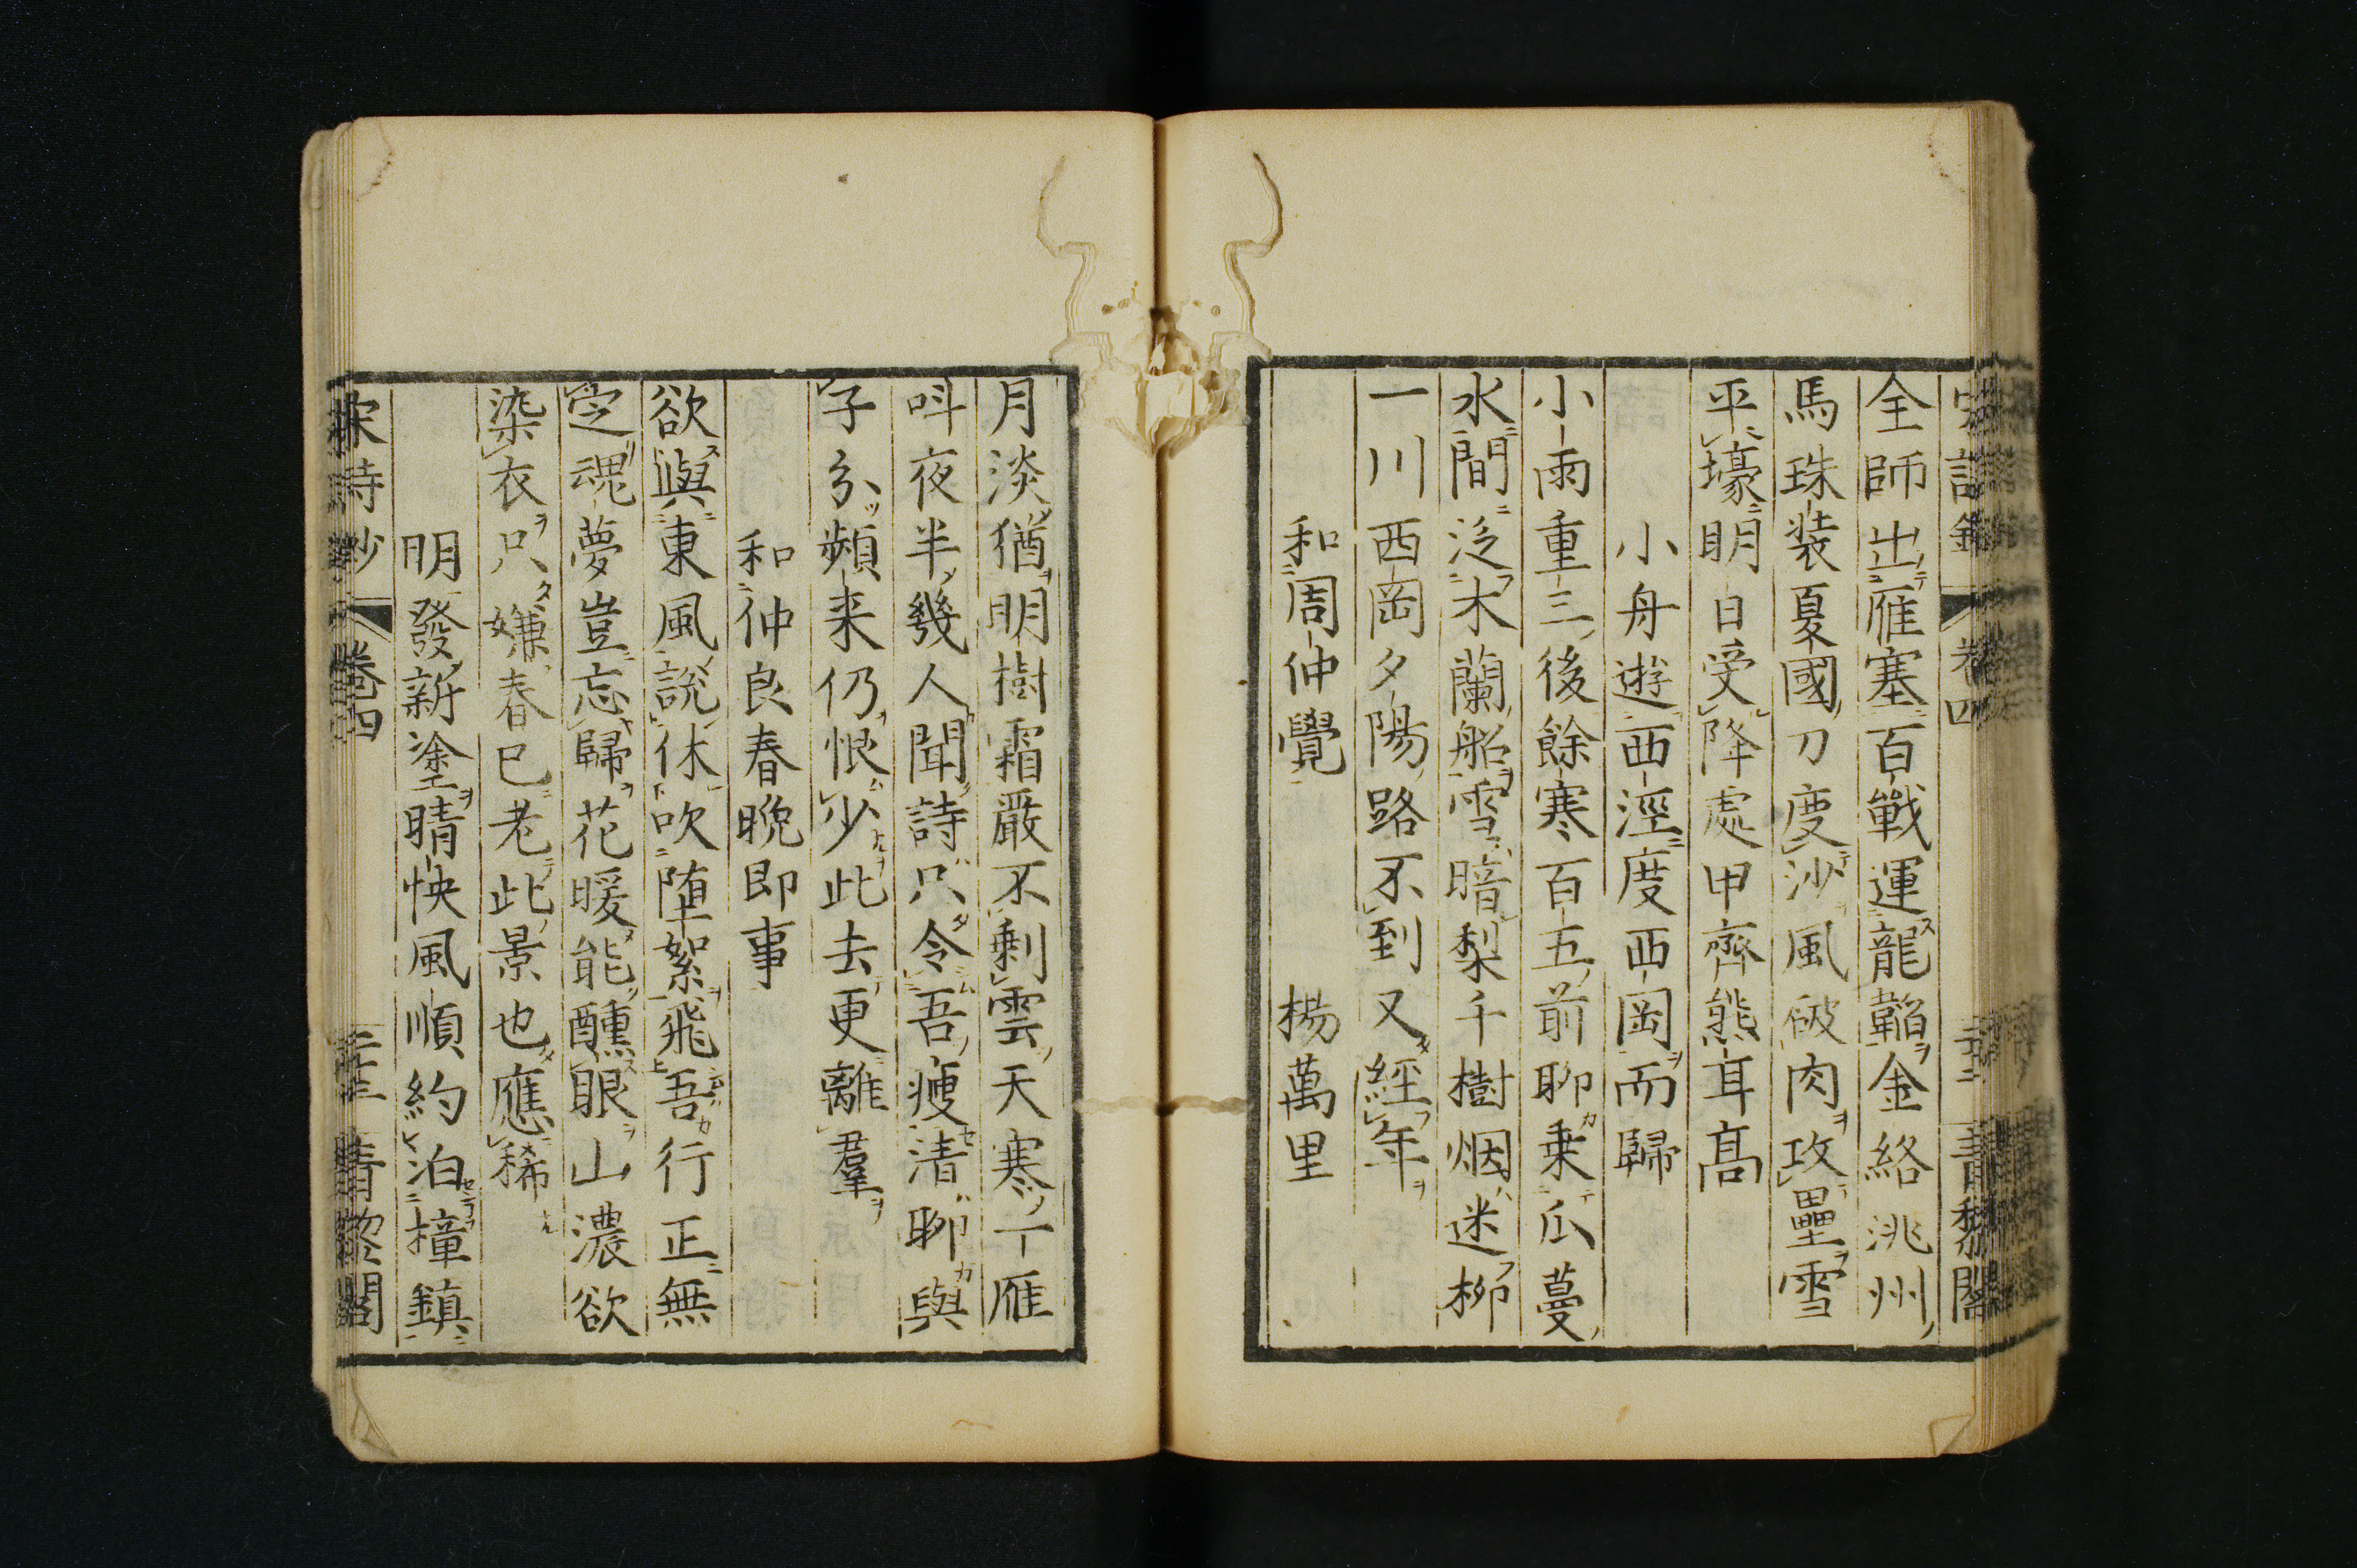 全師出雁塞百戰運龍韜金絡洮州
馬珠裝夏國刀度沙風破肉攻壘雪
平壕明日受降處甲齊熊耳高
小舟遊西涇度西岡而歸
小雨重三後餘寒百五前聊乗瓜蔓
水間泛木蘭船雪暗梨千樹烟迷柳
一川西岡夕陽路不到又經年
和周仲覺 楊萬里
月淡猶明樹霜嚴不剩雲天寒一雁
呌夜半幾人聞詩只令吾瘦清聊與
子分頻来仍恨少此去更離羣
和仲良春晚即事
欲與東風説休吹堕絮飛吾行正無
定魂夢豈忘歸花暖能醺眼山濃欲
染衣只嫌春已老此景也應稀
明發新塗晴快風順約泊樟鎮
宋詩鈔 卷四 青黎閣